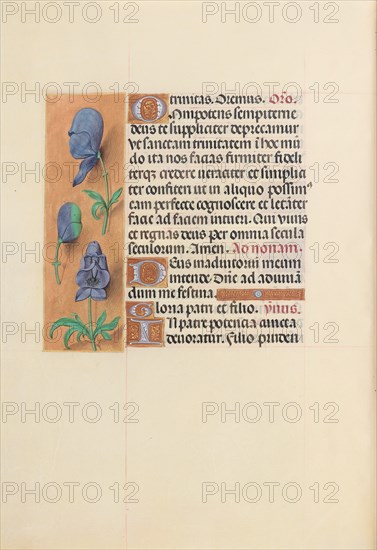 trinitas. Oremus. Oro.
Omnipotens sempiterne
deus te suppliciter deprecamur
ut sanctam trinitatem i hoc mun
do ita nos facias firmiter fideli
terq; credere ueraciter et simplici
ter confiteri ut in aliquo possim9
cam perfecte cognoscere et letanter
facie ad faciem intueri. Qui viuis
et regnas deus per omnia secula
seculorum. Amen. Ad nonam.
Deus in adiutorium meum
intende. Dne ad adiuuā
dum me festina.
Gloria patri et filio. ymus.
In patre potencia cuncta
denotatur. Filio pruden
PHOTO 12